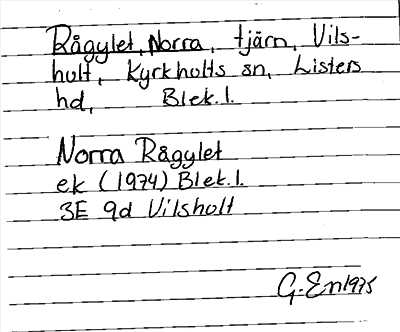 Rågylet, Norra, tjärn, Vils-
hult, Kyrkhults sn, Listers
hd, Blek.l.
Norra Rågylet
ek (1974) Blek.l.
3E 9d Vilshult
G. En 1975